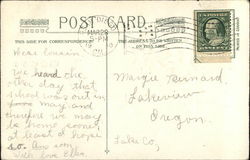 POST CARD
THIS SIDE FOR CORRESPONDENCE
THE ADDRESS TO BE WRITTEN
ON THIS SIDE
MAR 29
PM
Dear Cousin:
We heard the
other day that
school was out in
may and
therefore we may
be home sooner,
at least I hope
so.
With love Ella
Margie Bernard.
Lakeview
Oregon.
Lake Co,